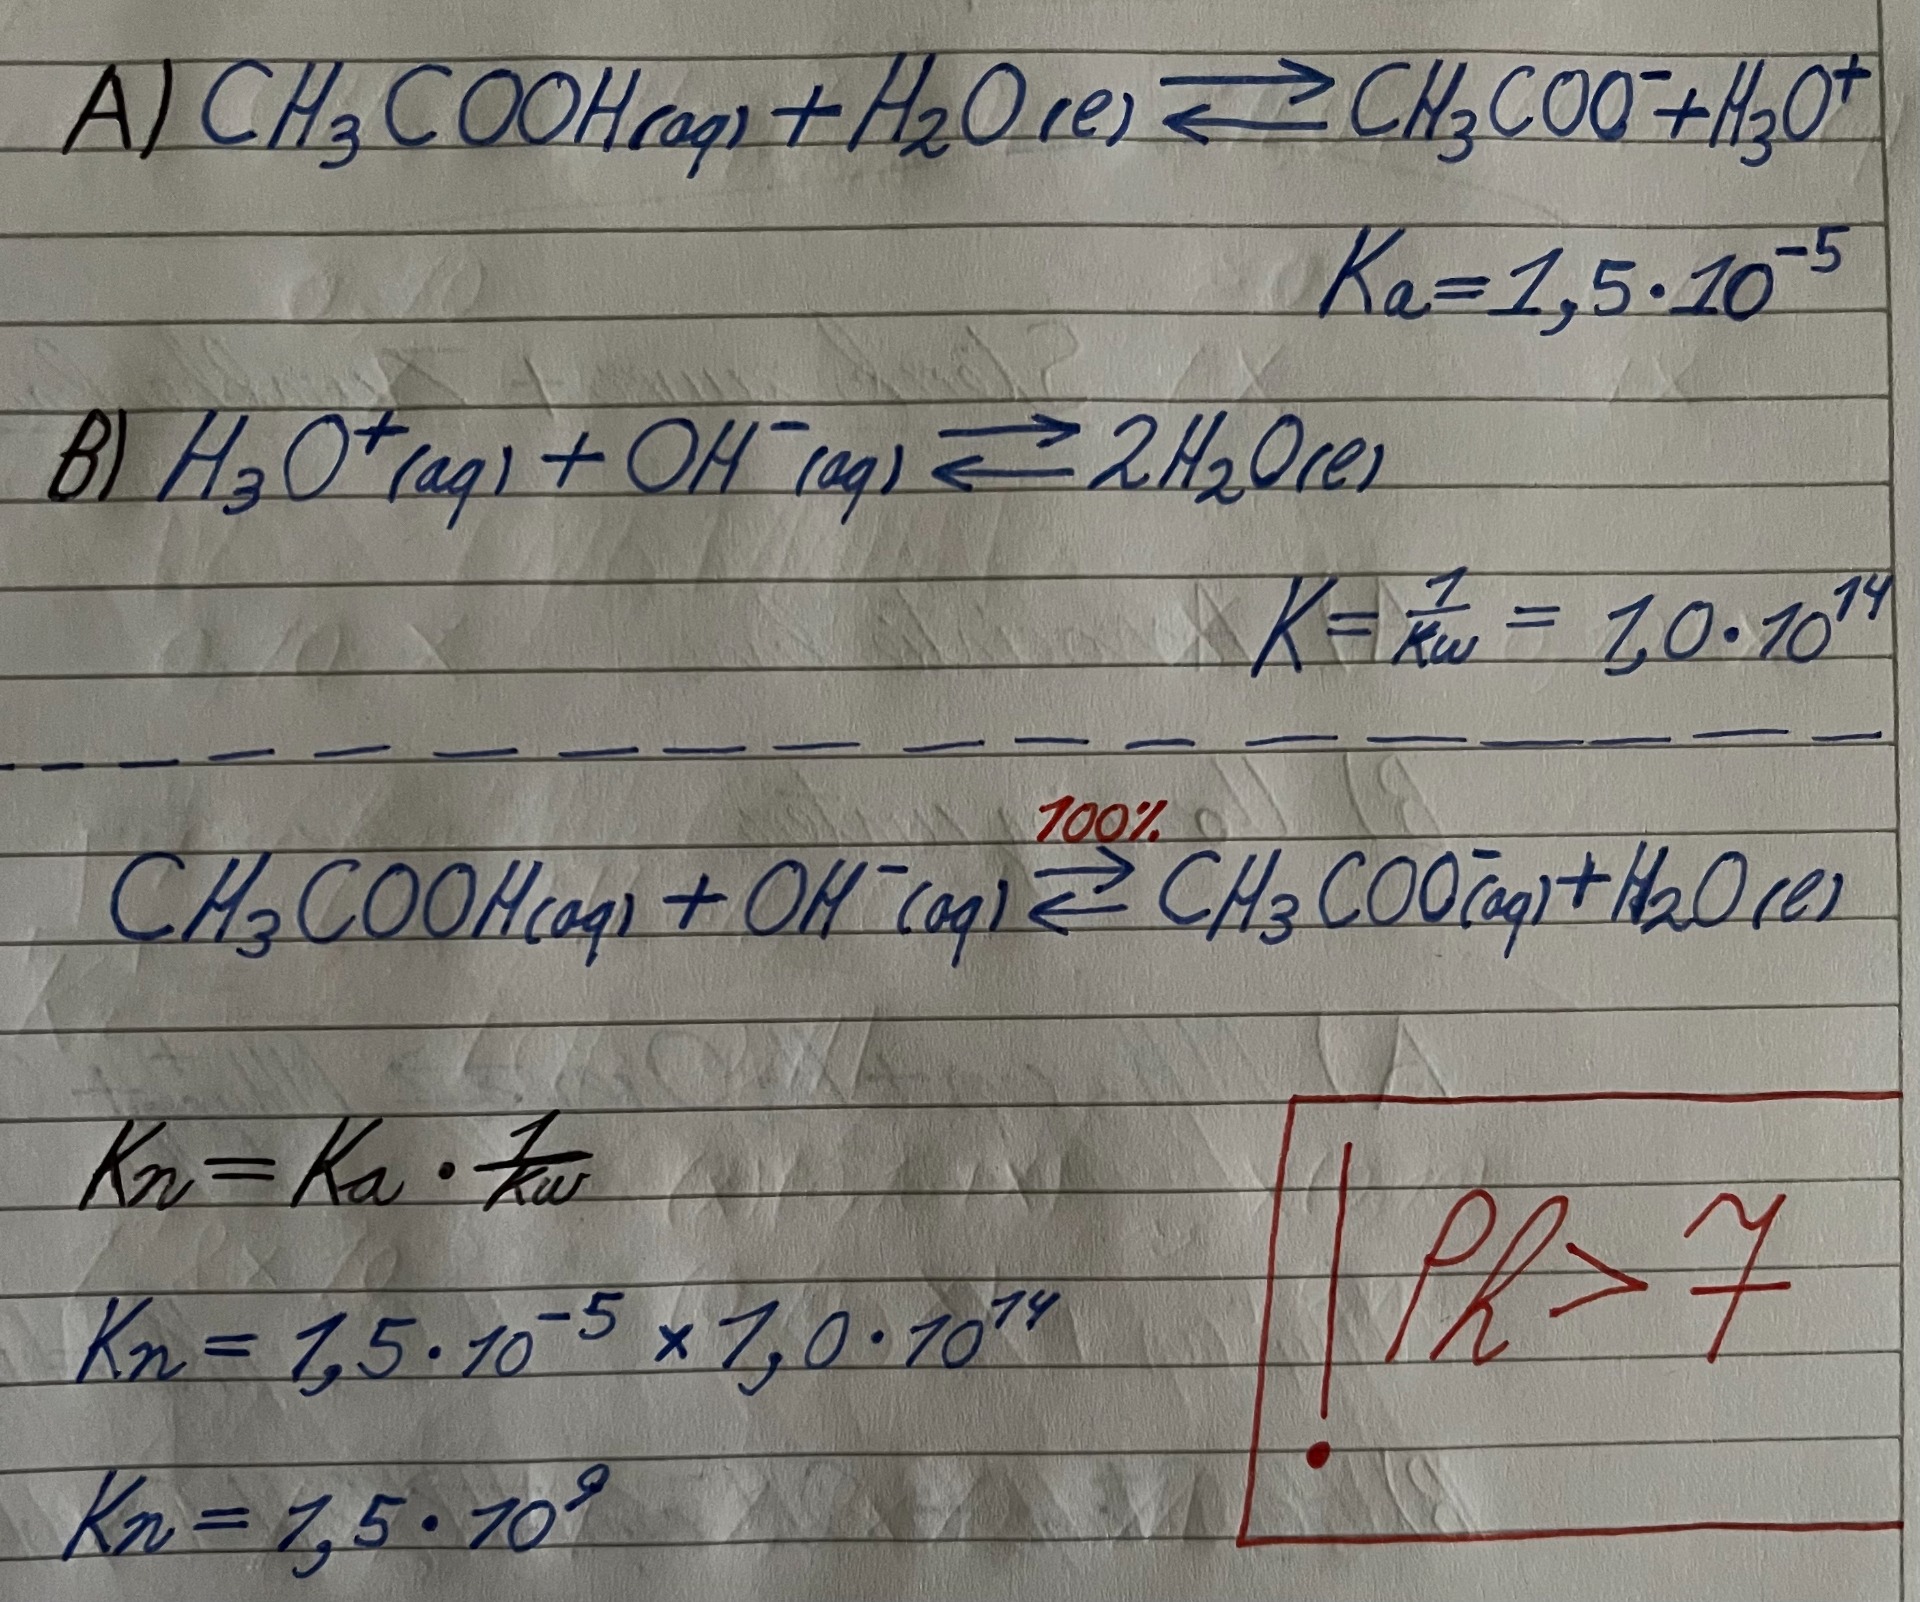 A) CH₃COOH(aq) + H₂O(l) ⇌ CH₃COO⁻ + H₃O⁺
Ka = 1,5 · 10⁻⁵
B) H₃O⁺(aq) + OH⁻(aq) ⇌ 2H₂O(l)
K = 1/Kw = 1,0 · 10¹⁴
100%
CH₃COOH(aq) + OH⁻(aq) ⇌ CH₃COO⁻(aq) + H₂O(l)
Kn = Ka · 1/Kw
Kn = 1,5 · 10⁻⁵ × 1,0 · 10¹⁴
! Ph > 7
Kn = 1,5 · 10⁹